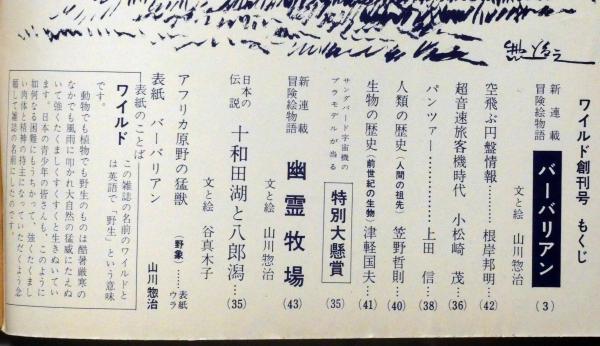 ワイルド創刊号 もくじ
新連載
冒険絵物語
バーバリアン
(3)
文と絵 山川惣治
空飛ぶ円盤情報………根岸邦明…(42)
超音速旅客機時代 小松崎 茂…(36)
パンツァー………………上田 信…(38)
人類の歴史(人間の祖先)笠野哲則…(40)
生物の歴史(前世紀の生物)津軽国夫…(41)
サンダーバード宇宙機の
プラモデルが当る
特別大懸賞
(35)
新連載
冒険絵物語
幽霊牧場
(43)
文と絵 山川惣治
日本の
伝説
十和田湖と八郎潟…(35)
文と絵 谷真木子
アフリカ原野の猛獣
(野象)……表紙ウラ
表紙 バーバリアン
山川惣治
表紙のことば
ワイルド
この雑誌の名前のワイルドと
は英語で「野生」という意味
です。
動物でも植物でも野生のものは酷暑厳寒の
なかでも風雨に叩かれ大自然の猛威にたえぬ
いて強くたくましくすくすくと生きぬいてい
ます。日本の青少年の皆さんも、このように
如何なる困難にもうちかって、強くたくまし
い肉体と精神の持主になっていただくよう念
願して雑誌の名前にしたのです。